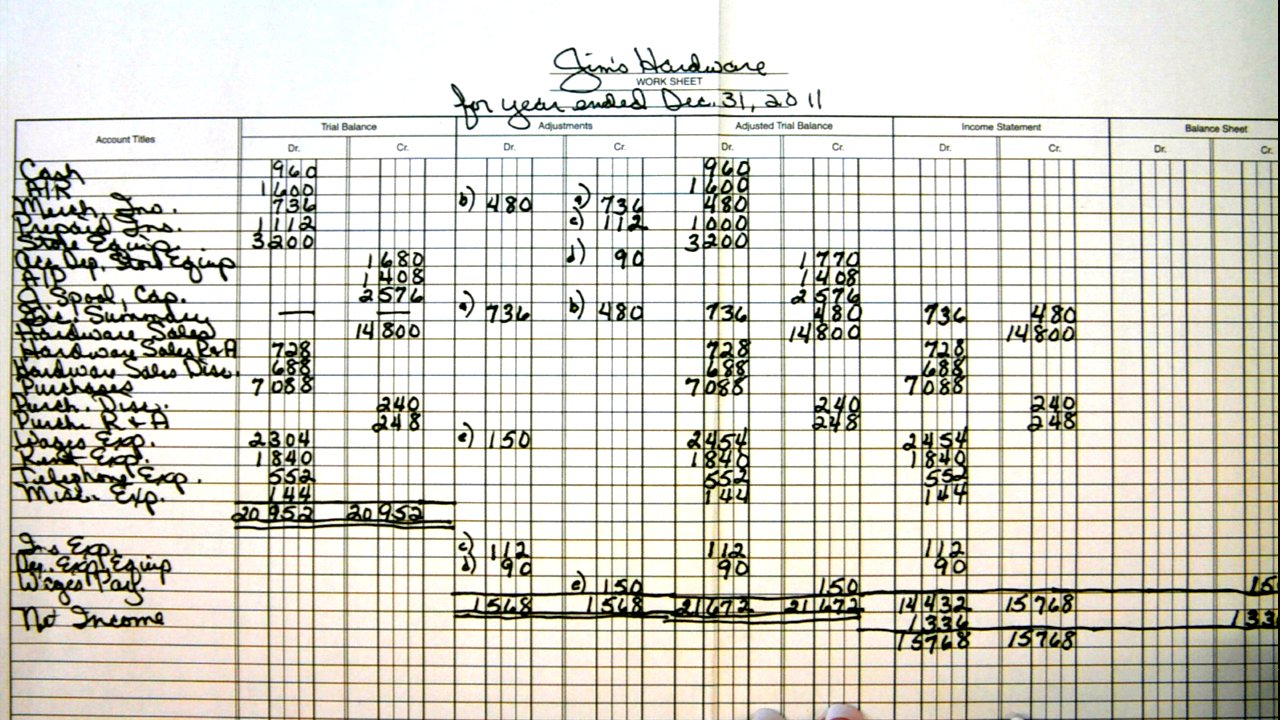 Jim's Hardware
WORK SHEET
for year ended Dec. 31, 2011
Account Titles Trial Balance Adjustments Adjusted Trial Balance Income Statement Balance Sheet
Dr. Cr. Dr. Cr. Dr. Cr. Dr. Cr. Dr. Cr.
Cash 960 960
A/R 1600 1600
Merch. Inv. 736 b) 480 a) 736 480
Prepaid Ins. 1112 c) 112 1000
Store Equip. 3200 3200
Acc. Dep. Store Equip 1680 d) 90 1770
A/P 1408 1408
J. Spool, Cap. 2576 2576
Inc. Summary — — a) 736 b) 480 736 480 736 480
Hardware Sales 14800 14800 14800
Hardware Sales R&A 728 728 728
Hardware Sales Disc. 688 688 688
Purchases 7088 7088 7088
Purch. Disc. 240 240 240
Purch. R&A 248 248 248
Wages Exp. 2304 e) 150 2454 2454
Rent Exp. 1840 1840 1840
Telephone Exp. 552 552 552
Misc. Exp. 144 144 144
20952 20952
Ins Exp. c) 112 112 112
Dep. Exp. Equip d) 90 90 90
Wages Pay. e) 150 150 15
1568 1568 21672 21672 14432 15768
Net Income 1336 133
15768 15768